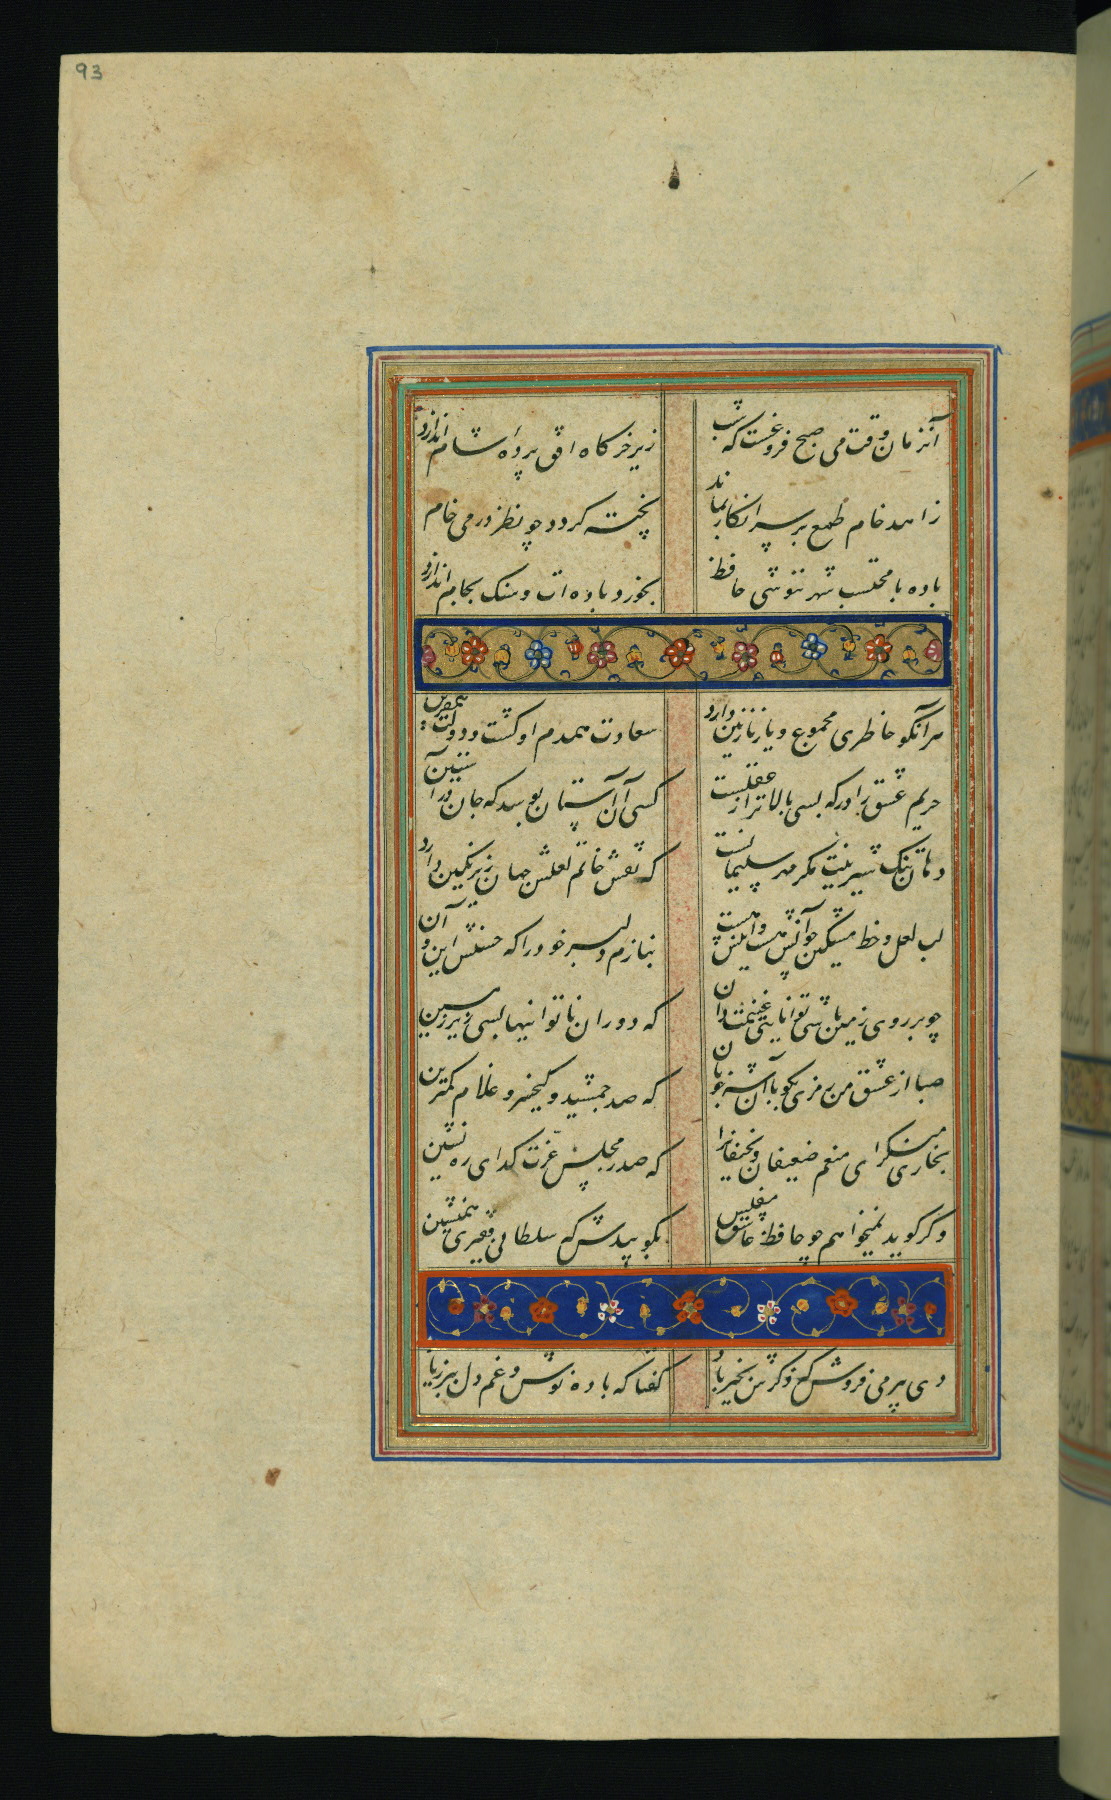 93
آنزمان وقت می صبح فروغست که شب
زیر خرکاه افق پرده شام اندازد
زاهد خام طمع بر سر انکار بماند
پخته کردد چو نظر در می خام
باده با محتسب شهر ننوشی حافظ
بخورد باده ات و سنک بجام اندازد
هر آنکو خاطری مجموع و یار نازنین دارد
سعادت همدم او کشت و دولت همقرین
حریم عشق را درکه بسی بالاتر از عقلست
کسی آن آستان بوسد که جان در آستین
دهان تنک شیرینت مکر مهر سلیمانست
که نقش خاتم لعلش جهان زیر نکین دارد
لب لعل و خط مشکین چو آنش هست و اینش هست
بنازم دلبر خود را که حسنش این و آن
چو بر روی زمین باشی توانایی غنیمت دان
که دوران ناتوانیها بسی زیر زمین
صبا از عشق من رمزی بکو با آن شه خوبان
که صد جمشید و کیخسرو غلام کمترین
بخاری منکر ای منعم ضعیفان و نحیفانرا
که صدر مجلس عزت کدای ره نشین
وکر کوید نمیخواهم چو حافظ عاشق مفلس
بکوییدش که سلطانی فقیری همنشین
دی پیر می فروش که ذکرش بخیر باد
کفتا که باده نوش و غم دل ببر ز یاد